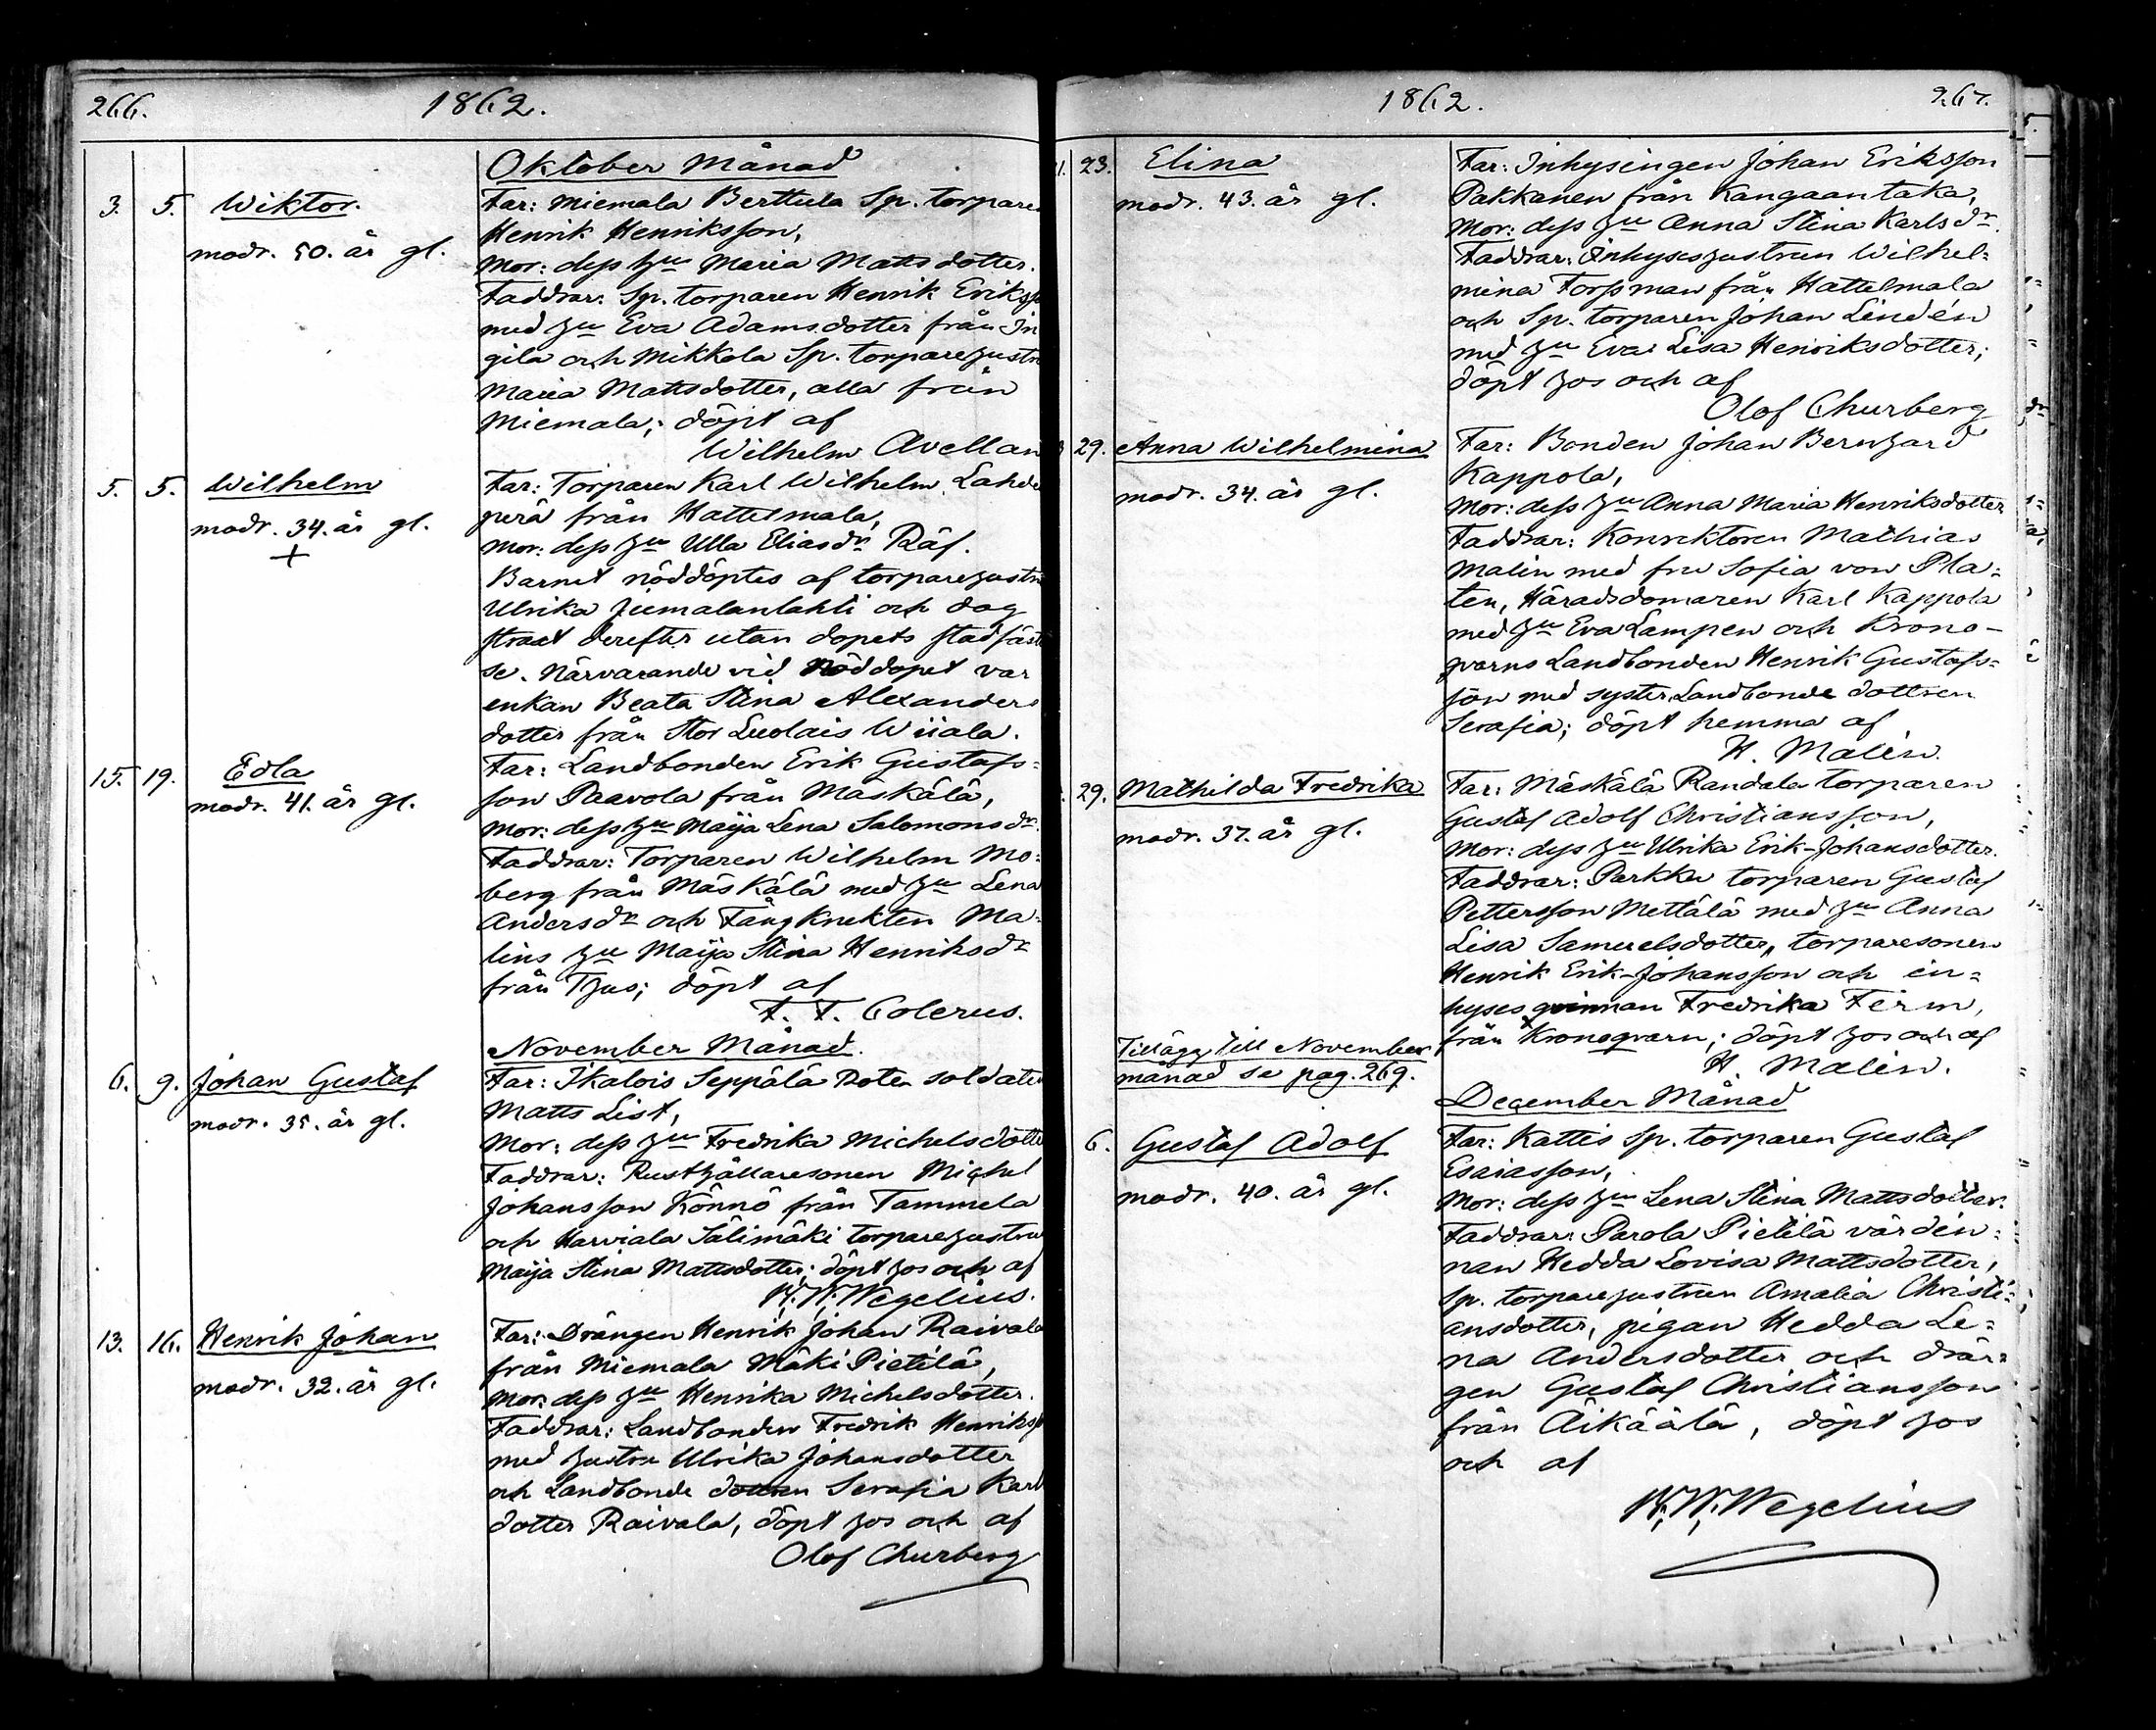 266.
1862.
Oktober Månad
3. 5. Wiktor.
modr. 50. år gl.
Far: Miemala Berttula Sp. torpare
Henrik Henriksson,
Mor: dess hu Maria Matts dotter.
Faddrar: Sp. torparen Henrik Eriks
med hu Eva Adamsdotter från In
gila och Mikkola Sp. torparehustru
Maria Mattsdotter, alla från
Miemala; döpt af
Wilhelm Avellan
5. 5. Wilhelm
modr. 34. år gl.
+
Far: Torparen Karl Wilhelm Lahde
perä från Hattelmala,
Mor: dess hu Ulla Eliasdr Räf.
Barnet nöddöptes af torparehustru
Ulrika Jumalanlahti och dog
straxt derefter utan dopets stadfäst
se. Närvarande vid nöddopet var
enkan Beata Stina Alexanders
dotter från Stor Luolais Wiiala.
15. 19. Edla
modr. 41. år gl.
Far: Landbonden Erik Gustafs=
son Paavola från Mäskälä,
Mor: dess hu Maija Lena Salomonsdr.
Faddrar: Torparen Wilhelm Mo=
berg från Mäskälä med hu Lena
Andersdr och Fångknekten Ma=
lins hu Maija Stina Henriksdr
från Thus; döpt af
F. F. Colerus.
November Månad.
6. 9. Johan Gustaf
modr. 35. år gl.
Far: Ikalois Seppälä Rote soldaten
Matts List,
Mor: dess hu Fredrika Michelsdotte
Faddrar: Rusthållaresonen Michel
Johansson Könnö från Tammela
och Harviala Sälimäki torparehustru
Maija Stina Mattsdotter; döpt hos och af
K. W. Wegelius.
13. 16. Henrik Johan
modr. 32. år gl.
Far: Drängen Henrik Johan Raivala
från Miemala Mäki Pietilä,
Mor: dess hu Henrika Michelsdotter.
Faddrar: Landbonden Fredrik Henriks
med hustru Ulrika Johansdotter
och Landbonde dottren Serafia Karls
dotter Raivala, döpt hos och af
Olof Churberg
1862.
267.
23. Elina
modr. 43. år gl.
Far: Inhysingen Johan Eriksson
Pakkanen från Kangaantaka,
Mor: dess hu Anna Stina Karlsdr.
Faddrar: Inhyseshustrun Wilhel=
mina Forsman från Hattelmala
och Sp. torparen Johan Lindén
med hu Eva Lisa Henriksdotter;
döpt hos och af
Olof Churberg
29. Anna Wilhelmina
modr. 34. år gl.
Far: Bonden Johan Bernhard
Kappola,
Mor: dess hu Anna Maria Henriksdotter
Faddrar: Konrektoren Mathias
Malin med fru Sofia von Pla=
ten, Häradsdomaren Karl Kappola
med hu Eva Lampen och Krono-
qvarns Landbonden Henrik Gustafs=
son med syster Landbonde dottren
Serafia; döpt hemma af
H. Malin.
29. Mathilda Fredrika
modr. 37. år gl.
Far: Mäskälä Randala torparen
Gustaf Adolf Christiansson,
Mor: dess hu Ulrika Erik-Johansdotter.
Faddrar: Parkka torparen Gustaf
Pettersson Mettälä med hu Anna
Lisa Samuelsdotter, torparesonen
Henrik Erik-Johansson och in=
hyses qvinnan Fredrika Ferm,
från Kronoqvarn; döpt hos och af
H. Malin.
Tillägg till November
månad se pag. 269.
December Månad
6. Gustaf Adolf
modr. 40. år gl.
Far: Kattis Sp. torparen Gustaf
Esaiasson,
Mor: dess hu Lena Stina Mattsdotter.
Faddrar: Parola Pietilä värdin=
nan Hedda Lovisa Mattsdotter,
Sp. torparehustrun Amalia Christi=
ansdotter, pigan Hedda Le=
na Andersdotter och drän=
gen Gustaf Christiansson
från Äikäälä, döpt hos
och af
K. W. Wegelius